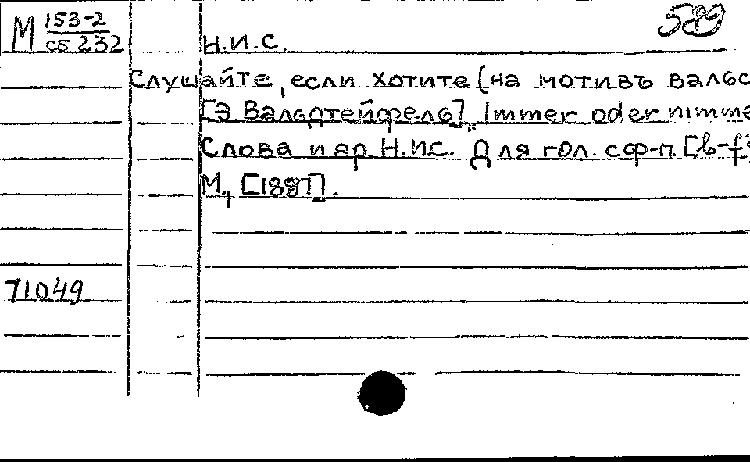 М 153-2
сб 232
589
Н.И.С.
Слушайте, если хотите (на мотивъ вальс
[Э Вальдтейфель]. Immer oder nimme
Слова и ар. Н.И.С. Для гол. с ф-п. [b-f
М., [1887].
71049